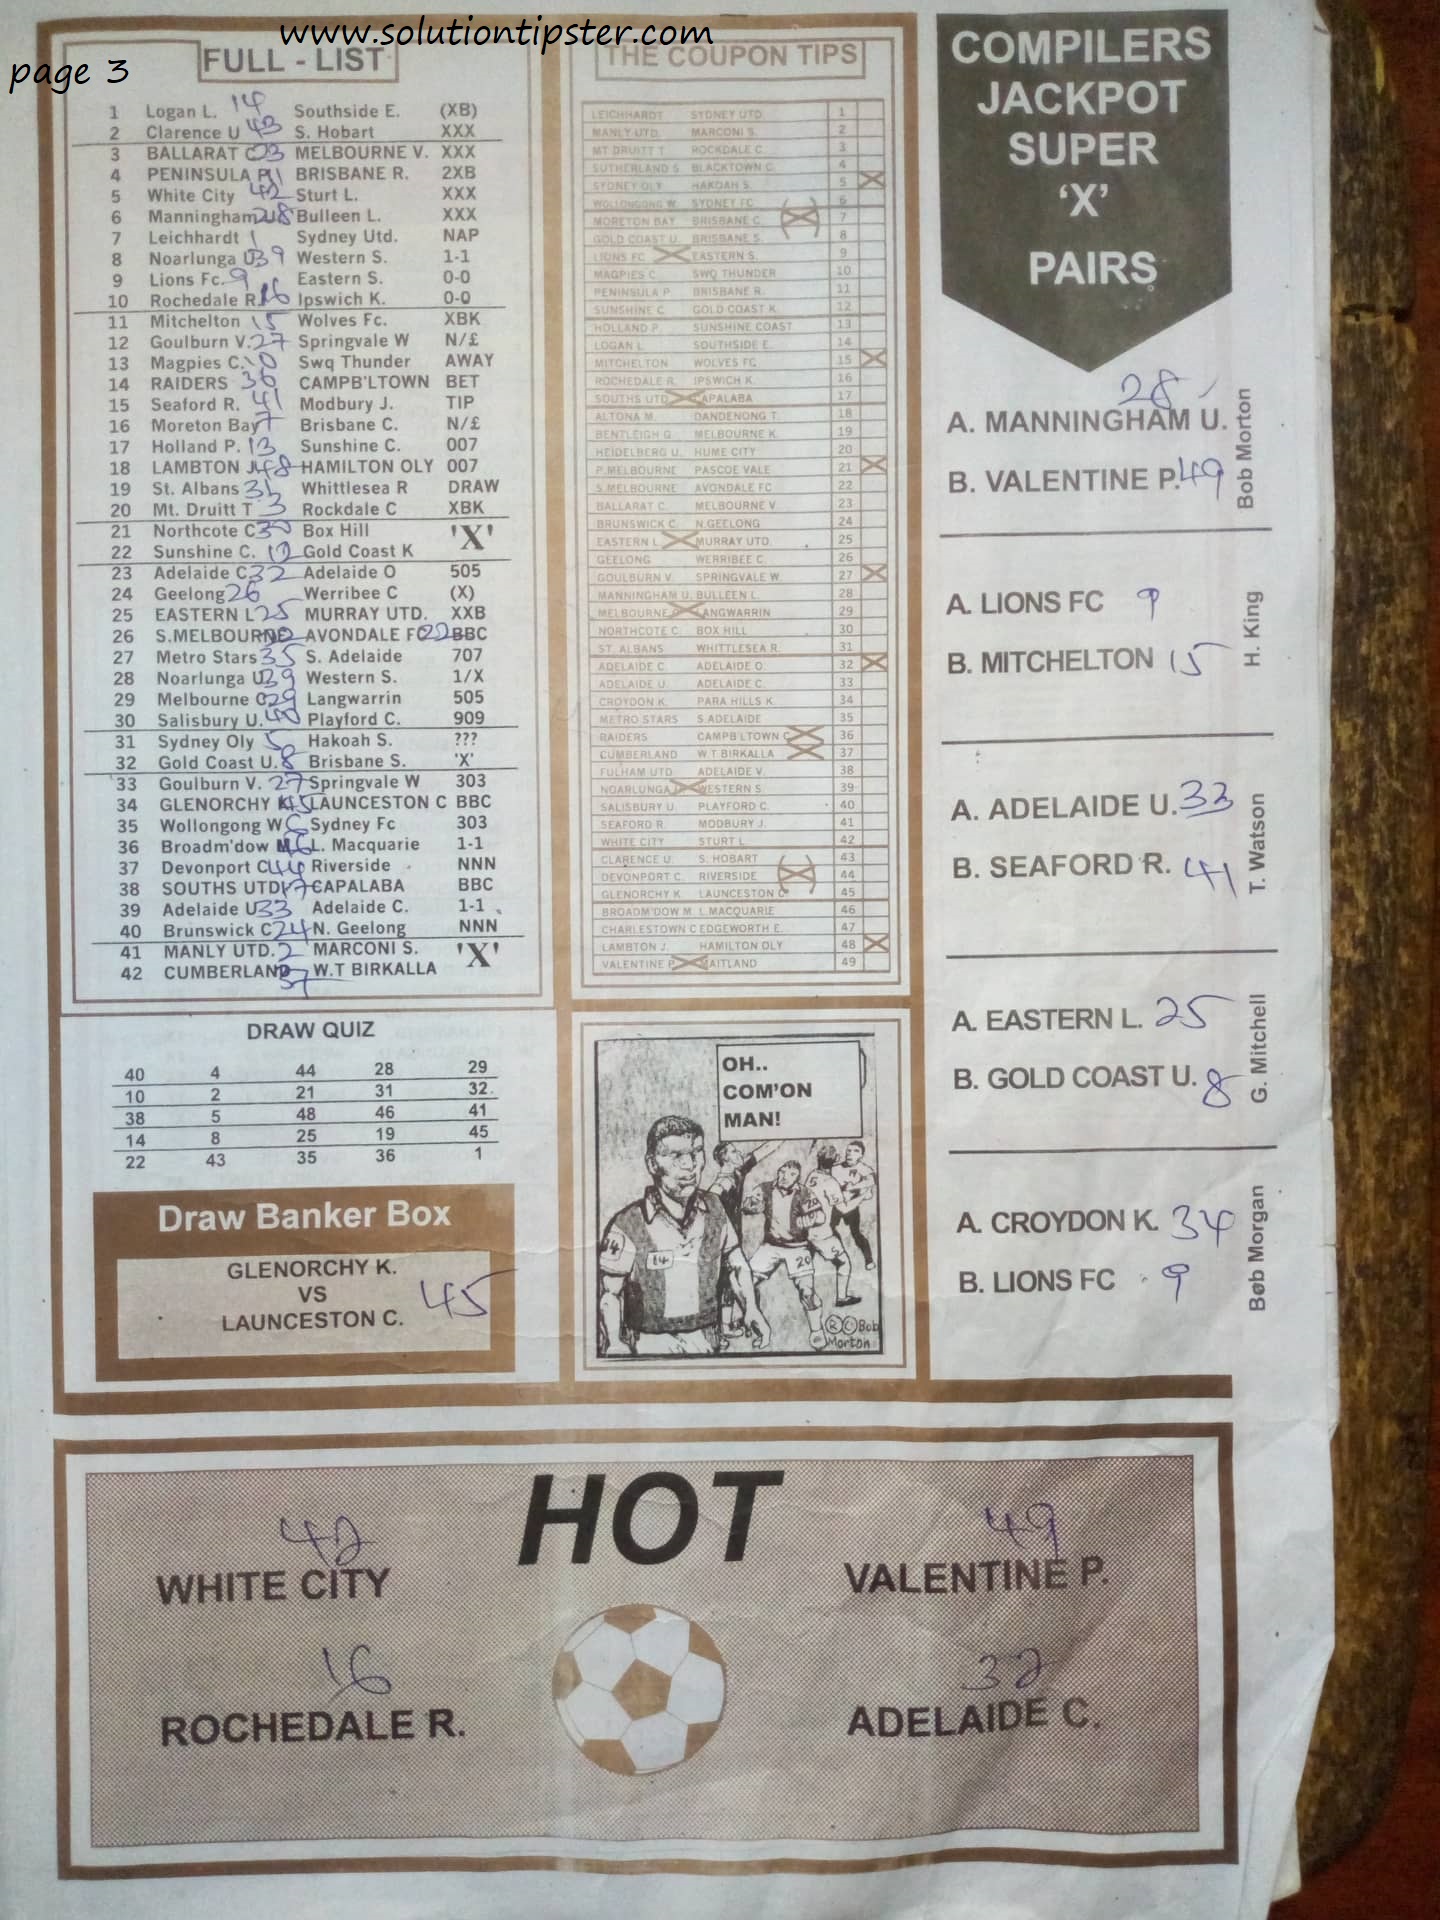 www.solutiontipster.com
page 3
FULL - LIST
1 Logan L. 14 Southside E. (XB)
2 Clarence U 43 S. Hobart XXX
3 BALLARAT C 23 MELBOURNE V. XXX
4 PENINSULA P 11 BRISBANE R. 2XB
5 White City 42 Sturt L. XXX
6 Manningham U 28 Bulleen L. XXX
7 Leichhardt 1 Sydney Utd. NAP
8 Noarlunga U 39 Western S. 1-1
9 Lions Fc. 9 Eastern S. 0-0
10 Rochedale R. 16 Ipswich K. 0-0
11 Mitchelton 15 Wolves Fc. XBK
12 Goulburn V. 27 Springvale W N/£
13 Magpies C. 10 Swq Thunder AWAY
14 RAIDERS 36 CAMPB'LTOWN BET
15 Seaford R. 41 Modbury J. TIP
16 Moreton Bay 7 Brisbane C. N/£
17 Holland P. 13 Sunshine C. 007
18 LAMBTON J 48 HAMILTON OLY 007
19 St. Albans 31 Whittlesea R DRAW
20 Mt. Druitt T 3 Rockdale C XBK
21 Northcote C 30 Box Hill
'X'
22 Sunshine C. 12 Gold Coast K
23 Adelaide C. 32 Adelaide O 505
24 Geelong 26 Werribee C (X)
25 EASTERN L 25 MURRAY UTD. XXB
26 S.MELBOURNE 22 AVONDALE FC 22 BBC
27 Metro Stars 35 S. Adelaide 707
28 Noarlunga U 39 Western S. 1/X
29 Melbourne C 29 Langwarrin 505
30 Salisbury U. 40 Playford C. 909
31 Sydney Oly 5 Hakoah S. ???
32 Gold Coast U. 8 Brisbane S. 'X'
33 Goulburn V. 27 Springvale W 303
34 GLENORCHY K 45 LAUNCESTON C BBC
35 Wollongong W 6 Sydney Fc 303
36 Broadm'dow M 46 L. Macquarie 1-1
37 Devonport C 44 Riverside NNN
38 SOUTHS UTD 17 CAPALABA BBC
39 Adelaide U 33 Adelaide C. 1-1
40 Brunswick C 24 N. Geelong NNN
41 MANLY UTD. 2 MARCONI S.
'X'
42 CUMBERLAND 37 W.T BIRKALLA
THE COUPON TIPS
LEICHHARDT SYDNEY UTD 1
MANLY UTD. MARCONI S. 2
MT DRUITT T ROCKDALE C. 3
SUTHERLAND S. BLACKTOWN C. 4
SYDNEY OLY HAKOAH S. 5 X
WOLLONGONG W. SYDNEY FC 6
MORETON BAY BRISBANE C. (X) 7
GOLD COAST U. BRISBANE S. 8
LIONS FC X EASTERN S. 9
MAGPIES C. SWQ THUNDER 10
PENINSULA P. BRISBANE R. 11
SUNSHINE C. GOLD COAST K 12
HOLLAND P. SUNSHINE COAST 13
LOGAN L SOUTHSIDE E. 14
MITCHELTON WOLVES FC 15 X
ROCHEDALE R. IPSWICH K. 16
SOUTHS UTD X CAPALABA 17
ALTONA M. DANDENONG T. 18
BENTLEIGH G. MELBOURNE K. 19
HEIDELBERG U. HUME CITY 20
P.MELBOURNE PASCOE VALE 21 X
S.MELBOURNE AVONDALE FC 22
BALLARAT C. MELBOURNE V 23
BRUNSWICK C. N.GEELONG 24
EASTERN L X MURRAY UTD. 25
GEELONG WERRIBEE C. 26
GOULBURN V. SPRINGVALE W. 27 X
MANNINGHAM U. BULLEEN L. 28
MELBOURNE X LANGWARRIN 29
NORTHCOTE C. BOX HILL 30
ST. ALBANS WHITTLESEA R. 31
ADELAIDE C. ADELAIDE O. 32 X
ADELAIDE U. ADELAIDE C. 33
CROYDON K. PARA HILLS K. 34
METRO STARS S.ADELAIDE 35
RAIDERS CAMPB'LTOWN C X 36
CUMBERLAND W.T BIRKALLA X 37
FULHAM UTD ADELAIDE V. 38
NOARLUNGA X WESTERN S. 39
SALISBURY U. PLAYFORD C. 40
SEAFORD R. MODBURY J. 41
WHITE CITY STURT L. 42
CLARENCE U. S. HOBART 43
DEVONPORT C. RIVERSIDE (X) 44
GLENORCHY K. LAUNCESTON C 45
BROADM'DOW M. L.MACQUARIE 46
CHARLESTOWN C EDGEWORTH E. 47
LAMBTON J. HAMILTON OLY 48 X
VALENTINE P X MAITLAND 49
COMPILERS
JACKPOT
SUPER
'X'
PAIRS
28
A. MANNINGHAM U.
B. VALENTINE P. 49
Bob Morton
A. LIONS FC 9
B. MITCHELTON 15
H. King
A. ADELAIDE U. 33
B. SEAFORD R. 41
T. Watson
A. EASTERN L. 25
B. GOLD COAST U. 8
G. Mitchell
A. CROYDON K. 34
B. LIONS FC 9
Bob Morgan
DRAW QUIZ
40 4 44 28 29
10 2 21 31 32
38 5 48 46 41
14 8 25 19 45
22 43 35 36 1
Draw Banker Box
GLENORCHY K.
VS
LAUNCESTON C. 45
OH..
COM'ON
MAN!
14
14
20
5
®©Bob
Morton
HOT
42
WHITE CITY
49
VALENTINE P.
16
ROCHEDALE R.
32
ADELAIDE C.